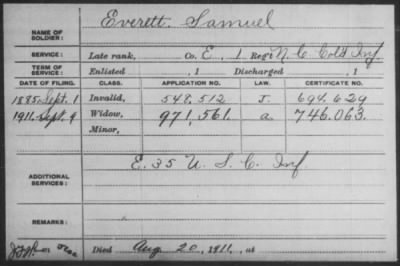 Everett. Samuel
NAME OF SOLDIER:
SERVICE: Late rank, Co. E, 1 Reg't N. C. Col'd Inf.
TERM OF SERVICE: Enlisted , 1 Discharged , 1
DATE OF FILING. CLASS. APPLICATION NO. LAW. CERTIFICATE NO.
1885, Sept. 1 Invalid, 548,512 J. 694.629
1911, Sept. 9 Widow, 971,561. a. 746.063.
Minor,
E. 35 U. S. C. Inf
ADDITIONAL SERVICES:
REMARKS:
Died Aug 20, 1911, at